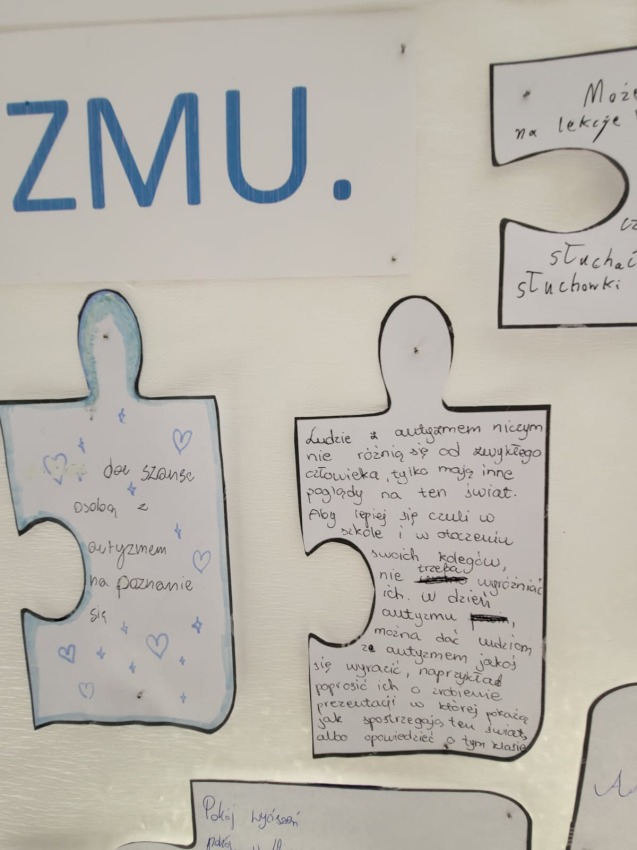 ZMU.
Może
na lekcje
słuchać
słuchowki
dać szansę
osobą z
autyzmem
na poznanie
się
Ludzie z autyzmem niczym
nie różnią się od zwykłego
człowieka, tylko mają inne
poglądy na ten świat.
Aby lepiej się czuli w
szkole i w otoczeniu
swoich kolegów,
nie trzeba wyróżniać
ich. W dzień
autyzmu ,
można dać ludziom
z autyzmem jakoś
się wyrazić, naprzykład
poprosić ich o zrobienie
prezentacji w której pokażą
jak spostrzegają ten świat,
albo opowiedzieć o tym klasie
Pokój wyciszeń